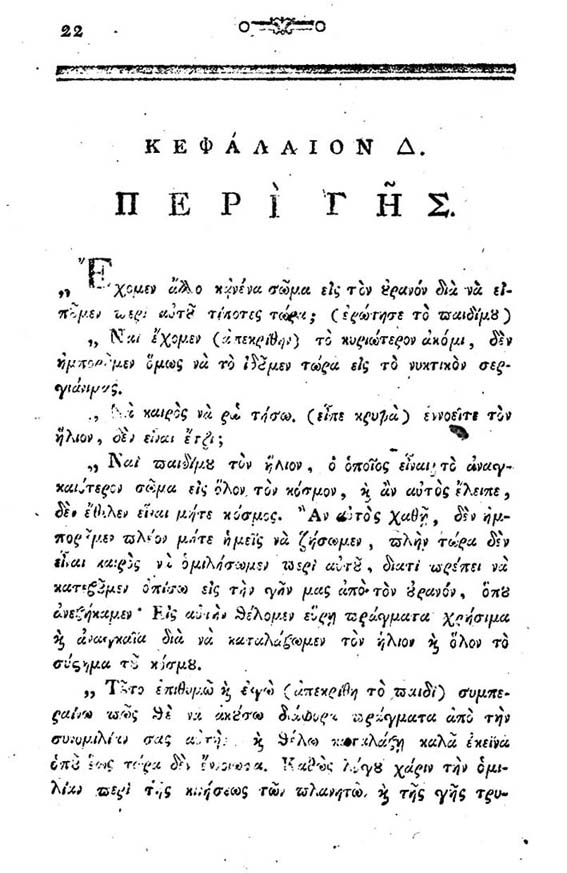 22
ΚΕΦΆΛΑΙΟΝ Δ.
ΠΕΡῚ ΓΗ͂Σ.
„ Ἔχομεν ἄλλο κᾳνένα σῶμα εἰς τὸν ȣ̓ρανόν διὰ νὰ εἰ-
πȣ͂μεν περὶ αὐτȣ͂ τίποτες τώρα; (ἐρώτησε τὸ παιδίμȣ)
„ Ναὶ ἔχομεν (ἀπεκρίθην) τὸ κυριώτερον ἀκόμι, δὲν
ἠμπορȣ͂μεν ὅμως νὰ τὸ ἰδȣ͂μεν τώρα εἰς τὸ νυκτικὸν σερ-
γιάνιμας.
„ καιρὸς νὰ ρωτήσω. (εἶπε κρυφὰ) ἐννοεῖτε τὸν
ἥλιον, δὲν εἶναι ἔτζι;
„ Ναὶ παιδίμȣ τὸν ἥλιον, ὁ ὁποῖος εἶναι τὸ ἀναγ-
καιότερον σῶμα εἰς ὅλον τὸν κόσμον, ϗ ἂν αὐτὸς ἔλειπε,
δὲν ἤθελεν εἶναι μήτε κόσμος. Ἂν αὐτὸς χαθῇ, δὲν ἠμ-
πορȣ͂μεν πλέον μήτε ἡμεῖς νὰ ζήσωμεν, πλὴν τώρα δὲν
εἶναι καιρὸς νὰ ὁμιλήσωμεν περὶ αὐτȣ͂, διατὶ πρέπει νὰ
κατεβȣ͂μεν ὀπίσω εἰς τὴν γῆν μας ἀπὸ τὸν ȣ̓ρανόν, ὁπȣ
ἀνεβήκαμεν· Εἰς αὐτὴν θέλομεν εὕρῃ πράγματα χρήσιμα
ϗ ἀναγκαῖα διὰ νὰ καταλάβωμεν τὸν ἥλιον ϗ ὅλον τὸ
σύςημα τȣ͂ κόσμȣ.
„ Τȣ͂το ἐπιθυμῶ ϗ ἐγὼ (ἀπεκρίθη τὸ παιδὶ) συμπε-
ραίνω πῶς θὲ νὰ ἀκȣ́σω διάφορα πράγματα ἀπὸ τὴν
συνομιλίαν σας αὐτὴν ϗ θέλω καταλάβῃ καλὰ ἐκεῖνα
ὁπȣ̃ ἕως τώρα δὲν ἔνοιωσα. Καθὼς λόγȣ χάριν τὴν ὁμι-
λίαν περὶ τῆς κινήσεως τῶν πλανητῶν ϗ τῆς γῆς τρυ-